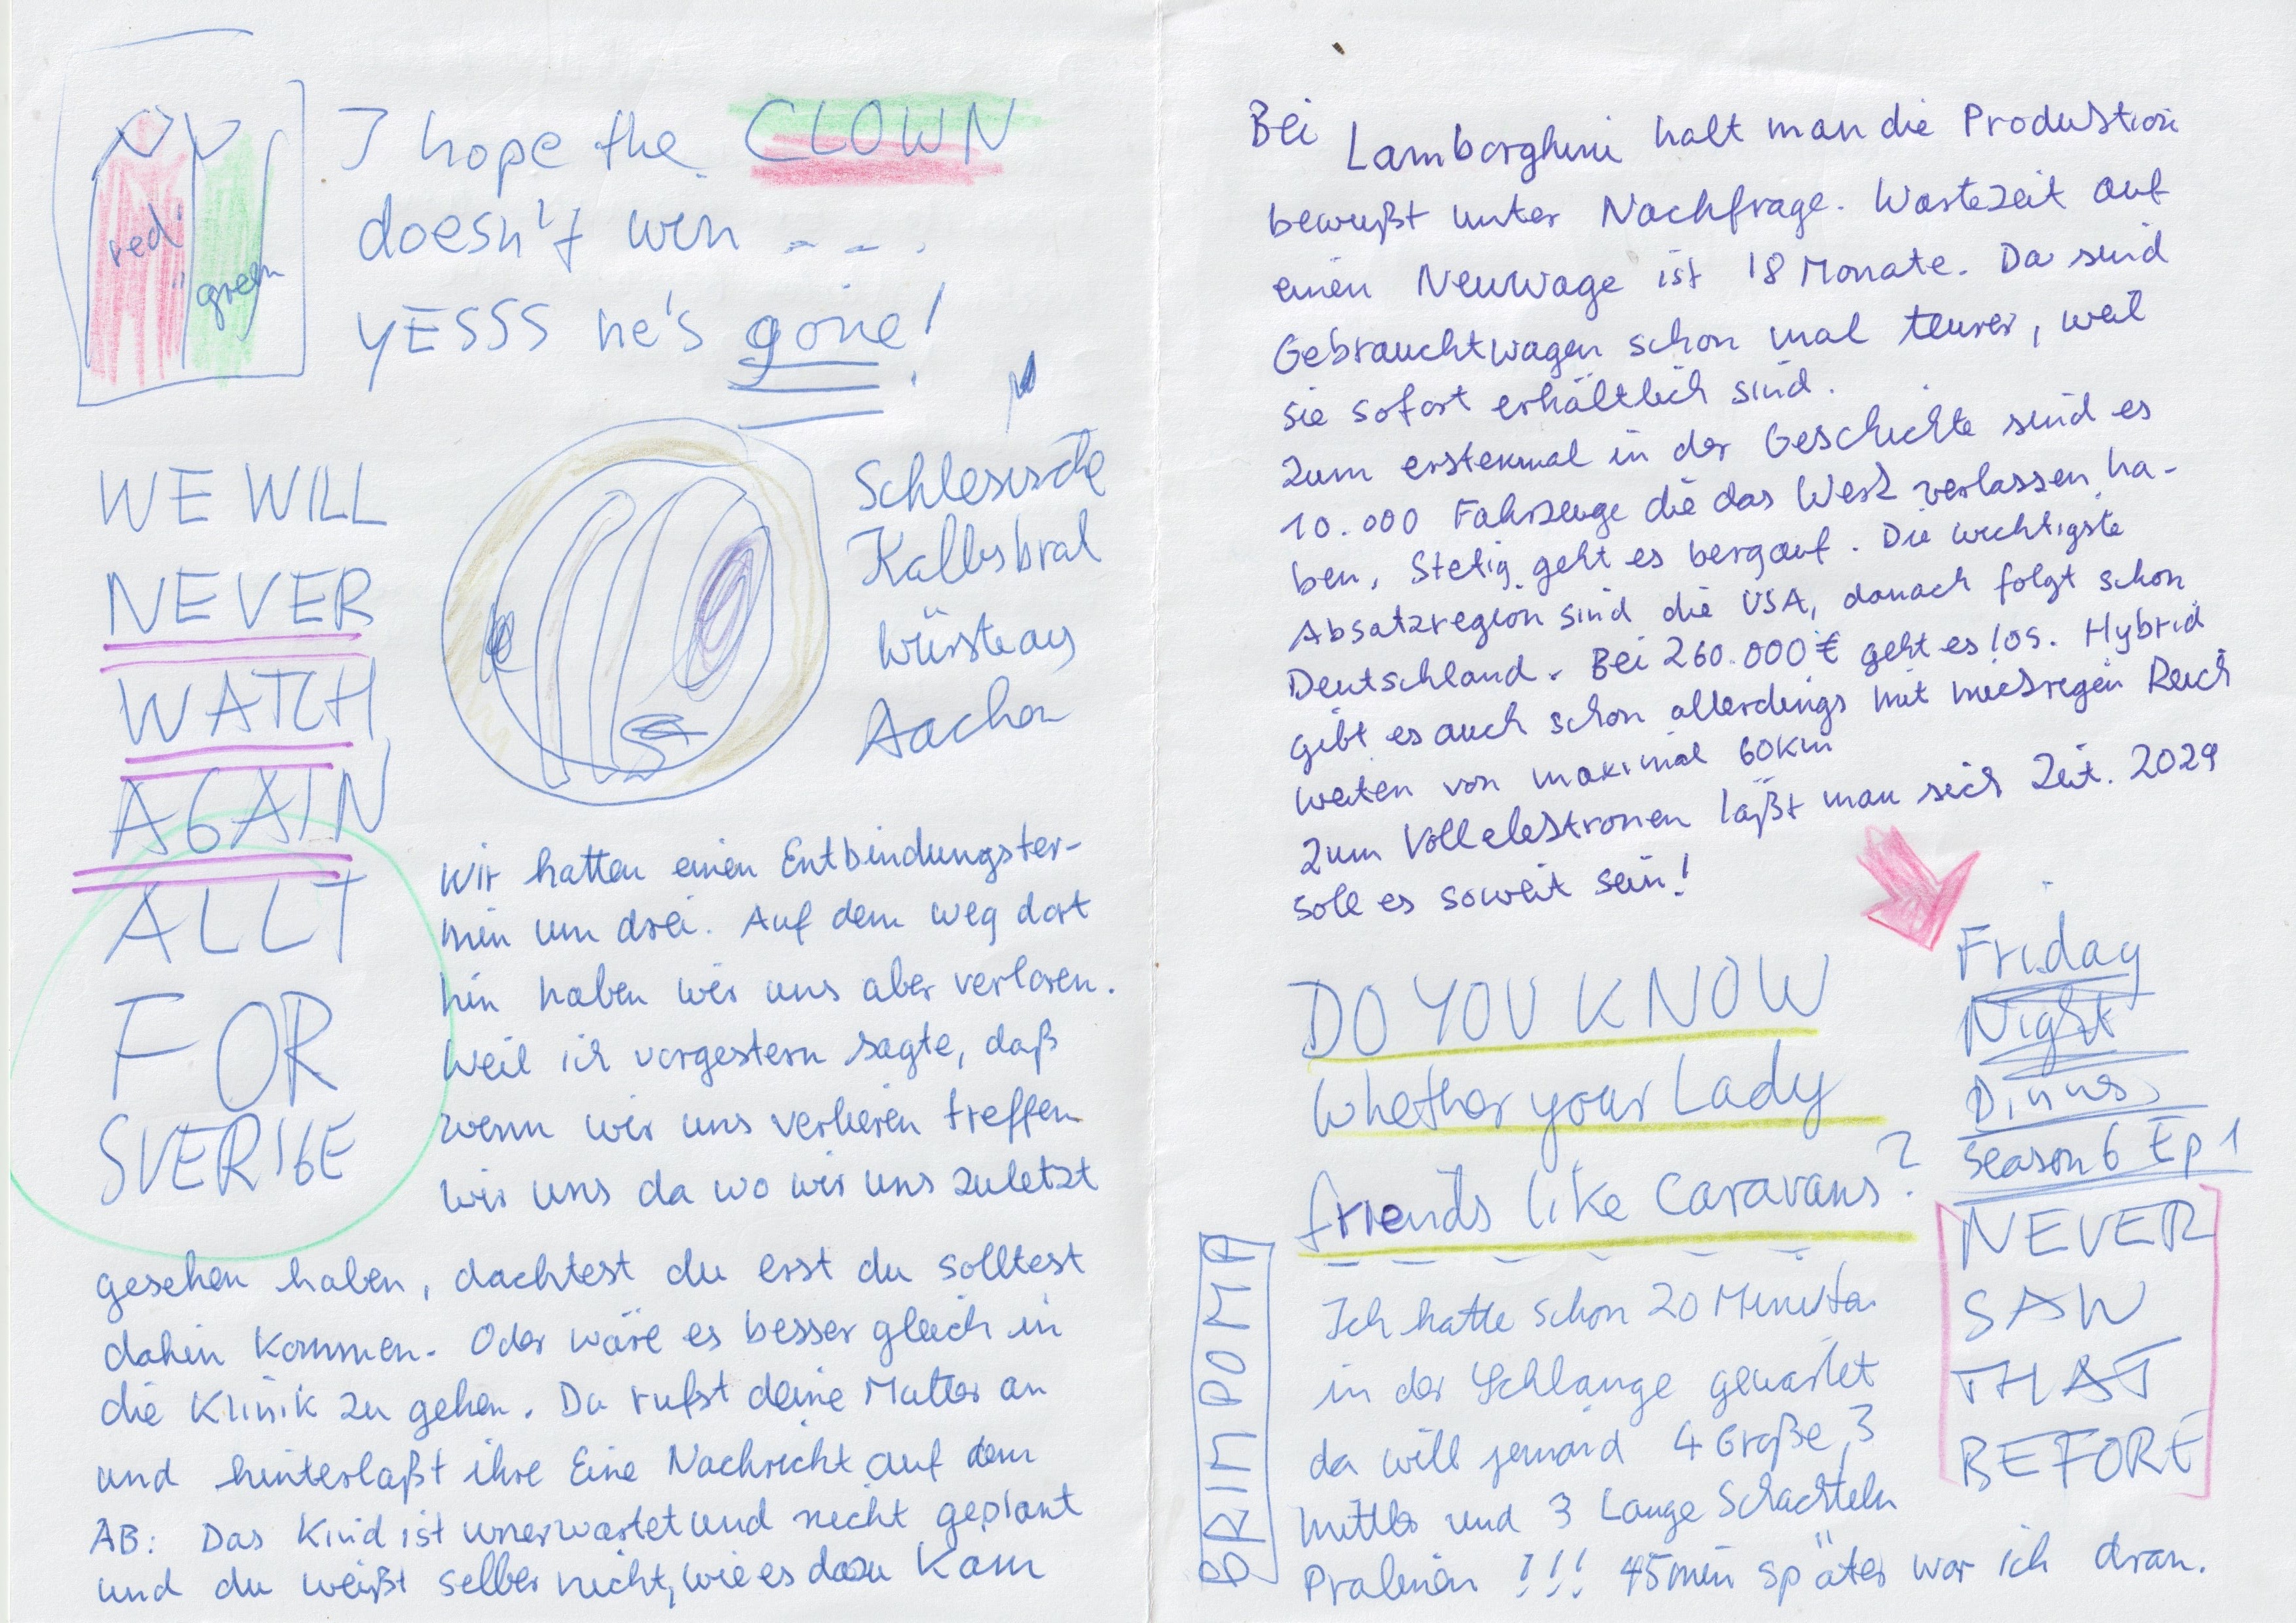 red
green
I hope the CLOWN
doesn't win - - - .
YESSS he's gone!
WE WILL
NEVER
WATCH
AGAIN
ALLT
FOR
SVERIGE
Schlesische
Kalbsbrat
würste aus
Aachen
Wir hatten einen Entbindungster-
min um drei. Auf dem Weg dort
hin haben wir uns aber verloren.
Weil ich vorgestern sagte, daß
wenn wir uns verlieren treffen
wir uns da wo wir uns zuletzt
gesehen haben, dachtest du erst du solltest
dahin kommen. Oder wäre es besser gleich in
die Klinik zu gehen. Du rufst deine Mutter an
und hinterlaßt ihre Eine Nachricht auf dem
AB: Das Kind ist unerwartet und nicht geplant
und du weißt selber nicht, wie es dazu kam
Bei Lamborghini halt man die Produktion
bewußt unter Nachfrage. Wartezeit auf
einen Neuwage ist 18 Monate. Da sind
Gebrauchtwagen schon mal teurer, weil
sie sofort erhältlich sind.
Zum erstenmal in der Geschichte sind es
10.000 Fahrzeuge die das Werk verlassen ha-
ben, Stetig geht es bergauf. Die wichtigste
Absatzregion sind die USA, danach folgt schon
Deutschland. Bei 260.000 € geht es los. Hybrid
gibt es auch schon allerdings mit niedrigen Reich
weiten von maximal 60km
Zum Vollelektronen läßt man sich Zeit. 2029
soll es soweit sein!
DO YOU KNOW
Whether your Lady
friends like Caravans?
Friday
Night
Dinner
Season 6 Ep 1
NEVER
SAW
THAT
BEFORE
BRIMPOMA
Ich hatte schon 20 Minuten
in der Schlange gewartet
da will jemand 4 Große, 3
Mittlere und 3 Lange Schachteln
Pralinen !!! 45min später war ich dran.